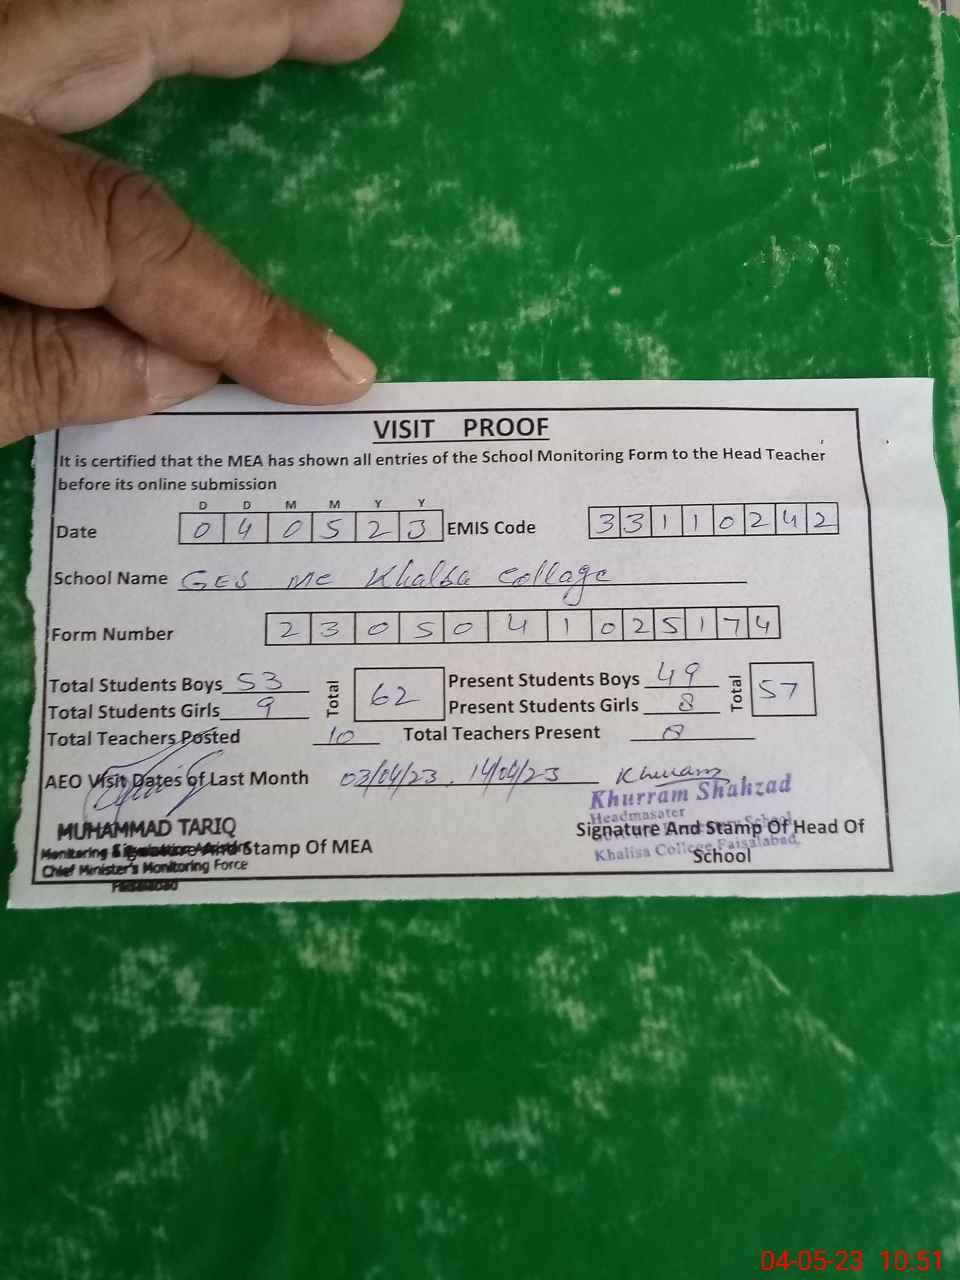 VISIT PROOF
It is certified that the MEA has shown all entries of the School Monitoring Form to the Head Teacher
before its online submission
D D M M Y Y
Date 0 4 0 5 2 3 EMIS Code 3 3 1 1 0 2 4 2
School Name GES MC Khalsa Collage
Form Number 2 3 0 5 0 4 1 0 2 5 1 7 4
Total Students Boys 53 Total 62 Present Students Boys 49 Total 57
Total Students Girls 9 Present Students Girls 8
Total Teachers Posted 10 Total Teachers Present 8
AEO Visit Dates of Last Month 03/04/23, 14/04/23 Khuram
Khurram Shahzad
Headmasater
MUHAMMAD TARIQ
Signature And Stamp Of Head Of
School
Khalisa College Faisalabad.
Monitoring
Signature And Stamp Of MEA
Chief Minister's Monitoring Force
Faisalabad
04-05-23 10:51